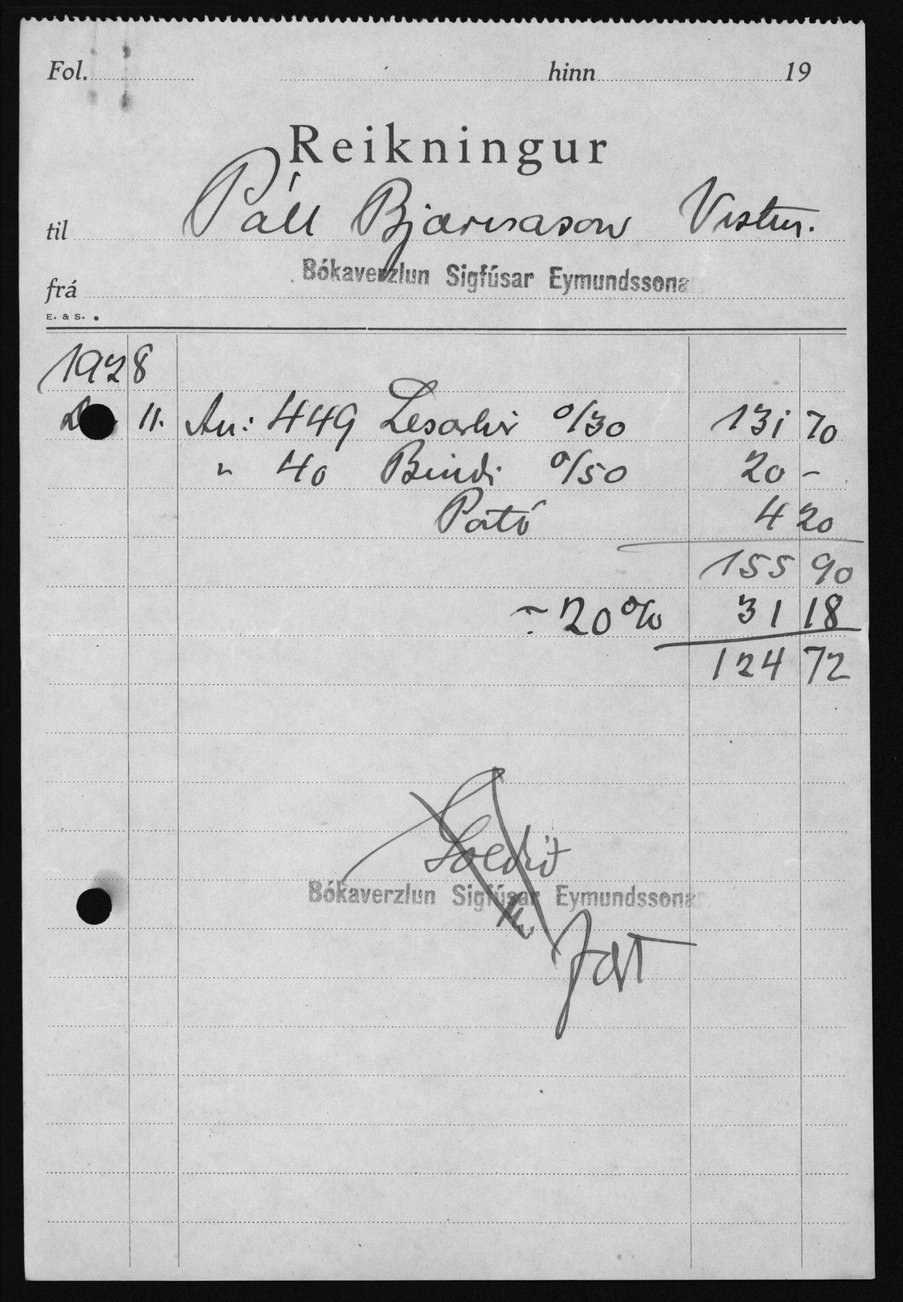 Fol. hinn 19
Reikningur
til Páll Bjarnason Vestm.
frá Bókaverzlun Sigfúsar Eymundssona
E. & S.
1928
11. An: 449 Lesarkir º/30 131 70
" 40 Bindi º/50 20 -
4 20
155 90
÷ 20% 31 18
124 72
Bókaverzlun Sigfúsar Eymundssonar